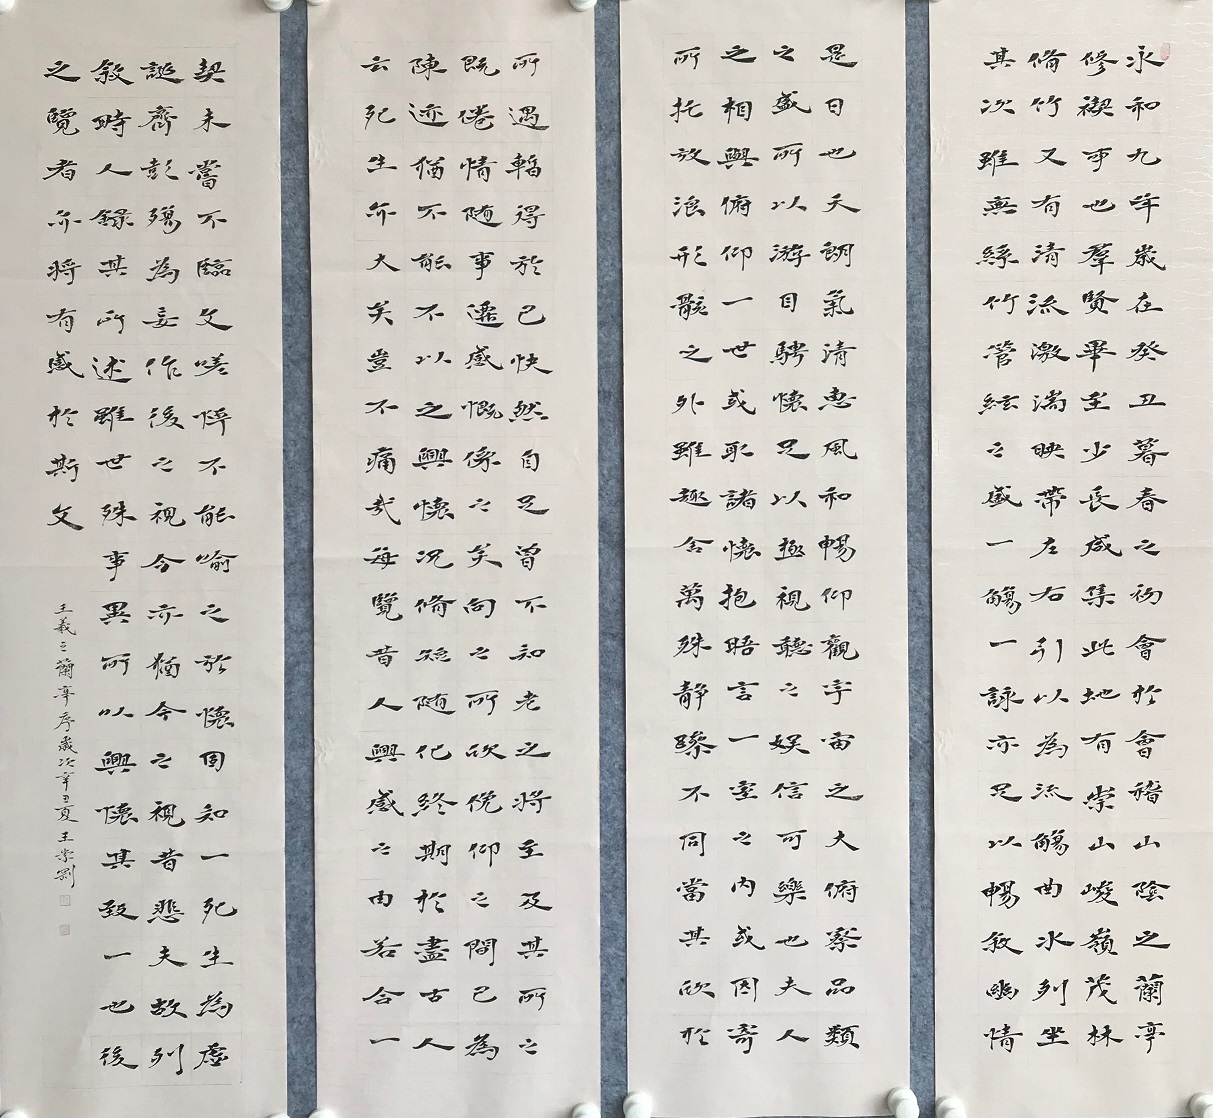 永和九年歲在癸丑暮春之初會於會稽山陰之蘭亭
修禊事也羣賢畢至少長咸集此地有崇山峻嶺茂林
脩竹又有清流激湍映帶左右引以為流觴曲水列坐
其次雖無絲竹管絃之盛一觴一詠亦足以暢敘幽情
是日也天朗氣清惠風和暢仰觀宇宙之大俯察品類
之盛所以游目騁懷足以極視聽之娛信可樂也夫人
之相與俯仰一世或取諸懷抱晤言一室之內或因寄
所托放浪形骸之外雖趣舍萬殊靜躁不同當其欣於
所遇暫得於己快然自足曾不知老之將至及其所之
既倦情随事遷感慨係之矣向之所欣俛仰之間已為
陳迹猶不能不以之興懷況脩短随化終期於盡古人
云死生亦大矣豈不痛哉每覽昔人興感之由若合一
契未嘗不臨文嗟悼不能喻之於懷固知一死生為虛
誕齊彭殤為妄作後之視今亦猶今之視昔悲夫故列
敘時人錄其所述雖世殊事異所以興懷其致一也後
之覽者亦將有感於斯文
王羲之蘭亭序歲次辛丑夏王